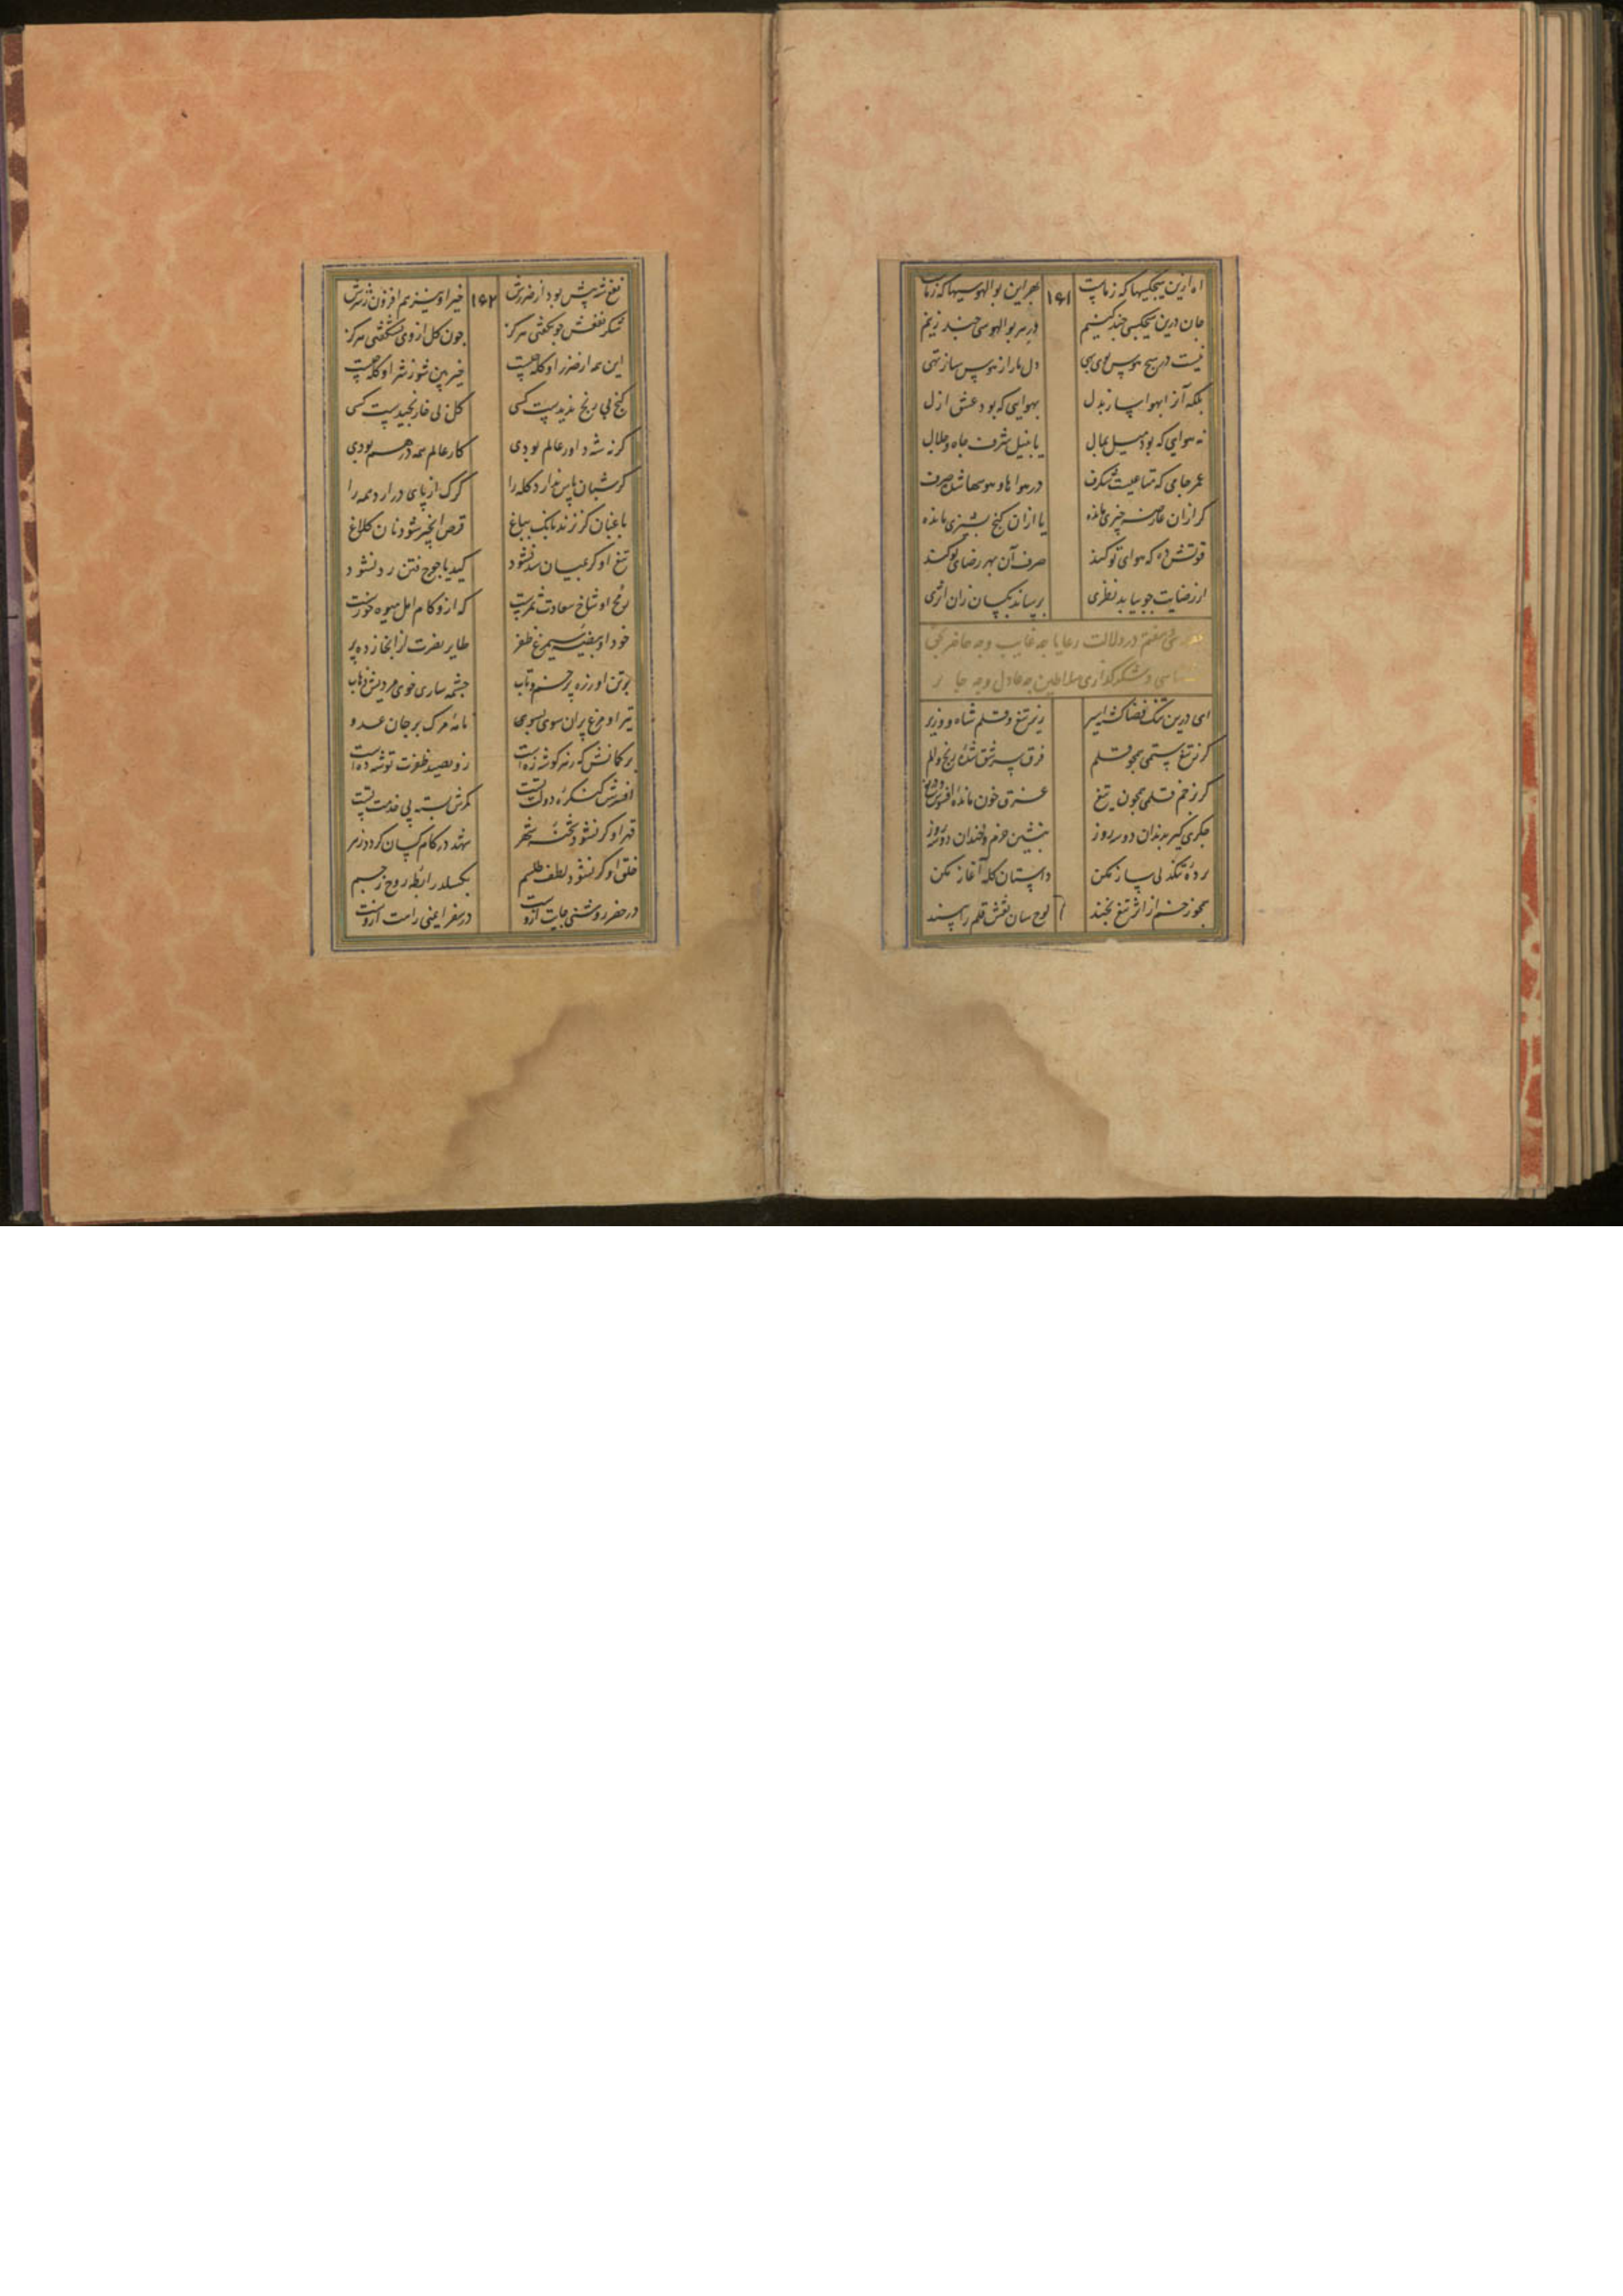 آه ازین هیچکسیها که ز ماست ۱۶۱ بهر این بوالهوسیها که ز ماست
جان درین هیچکسی چند کنیم در سر بوالهوسی چند زنیم
نیست در هیچ هوس بوی بهی دل ما را ز هوس ساز تهی
بلکه آنرا بهوا ساز بدل بهوایی که بود عشق ازل
نه هوایی که بود میل بمال یا بنیل شرف جاه و جلال
عمر جامی که متاعیست شگرف در هوا و هوسها شد صرف
کر ازان عارضه چیزی مانده یا ازان کنج پشیزی مانده
قوتش ده که هوای تو کند صرف آن بهر رضای تو کند
از رضایت چو بیابد نظری برساند بکسان زان اثری
در دلالت رعایا چه غایب و چه حاضر بحق
و شکرگذاری سلاطین چه عادل و چه جایر
ای درین تنک فضا کشته اسیر زیر تیغ و قلم شاه و وزیر
کر ز تیغ ستمی همچو قلم فرق سر شق شده رنج و الم
کر ز زخم قلمی همچون تیغ غرق خون مانده افسوس و دریغ
جکری کیر بدندان دو سه روز بنشین خرم و خندان دو سه روز
پرده تنکدلی ساز مکن داستان کله آغاز مکن
همچو زخم از اثر تیغ بخند لوح سان نقش قلم را بپسند
نفع شه بیش بود از ضررش ۱۶۲ خیر او نیز هم افزون ز شرش
شکر نفعش چو نکفتی هرکز چون کل از وی نشکفتی هرکز
این همه از ضرر او کله چیست خیر بین شو ز شر او کله چیست
کنج بی رنج ندیدست کسی کل بی خار نچیدست کسی
کر نه شه داور عالم بودی کار عالم همه درهم بودی
کر شبان پاس ندارد کله را کرک از پای درآرد همه را
باغبان کر نزند بانک بباغ قرص انجیر شود نان کلاغ
تیغ او کر بمیان سد نشود کید یاجوج فتن رد نشود
رمح او شاخ سعادت ثمرست که ازو کام امل میوه خورست
خود او بیضه سیمرغ ظفر طایر نصرت ازانجا زده پر
بر تن او زره پر خم و تاب چشمه ساری خوی مردیش آب
تیر او مرغ پران سوی بسوی نامه مرک بر جان عدو
بر کمانش که ز هر کوشه زه است زو بصید ظفرت توشه ده است
افسرش کنکره دولت تست کمرش بسته پی خدمت تست
قهر او کر نشود شحنه شهر شهد در کام کسان کردد زهر
خلق او کر نشود لطف طلسم بکسلد رابطه روح ز جسم
در حضر روشنی جایت ازوست در سفر ایمنی راهت ازوست